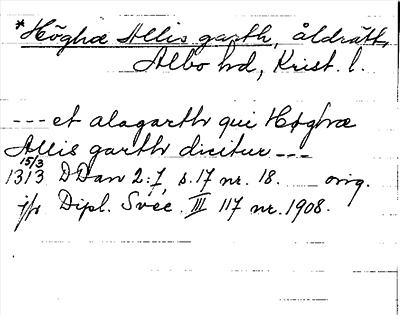 *Höghæ Allis garth, åldräth,
Albo hd, Krist. l.
--- et alagarth qui Høghræ
Allis garth dicitur ---
15/3
1313 DDan 2:7, s. 17 nr. 18. orig.
jfr Dipl. Svec. III 117 nr. 1908.